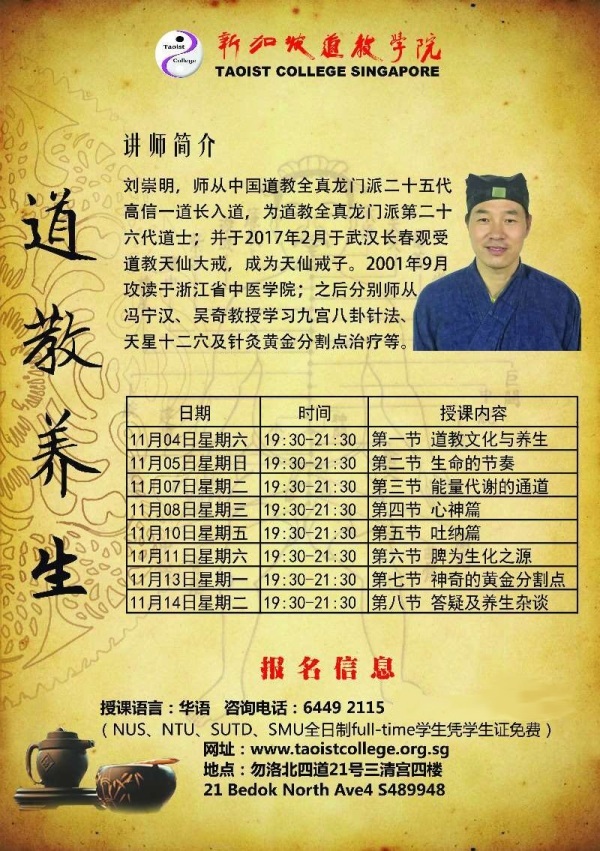 Taoist
College
新加坡道教学院
TAOIST COLLEGE SINGAPORE
道教养生
讲师简介
刘崇明，师从中国道教全真龙门派二十五代
高信一道长入道，为道教全真龙门派第二十
六代道士；并于2017年2月于武汉长春观受
道教天仙大戒，成为天仙戒子。2001年9月
攻读于浙江省中医学院；之后分别师从
冯宁汉、吴奇教授学习九宫八卦针法、
天星十二穴及针灸黄金分割点治疗等。
日期 时间 授课内容
11月04日星期六 19:30-21:30 第一节 道教文化与养生
11月05日星期日 19:30-21:30 第二节 生命的节奏
11月07日星期二 19:30-21:30 第三节 能量代谢的通道
11月08日星期三 19:30-21:30 第四节 心神篇
11月10日星期五 19:30-21:30 第五节 吐纳篇
11月11日星期六 19:30-21:30 第六节 脾为生化之源
11月13日星期一 19:30-21:30 第七节 神奇的黄金分割点
11月14日星期二 19:30-21:30 第八节 答疑及养生杂谈
报名信息
授课语言：华语 咨询电话：6449 2115
（NUS、NTU、SUTD、SMU全日制full-time学生凭学生证免费）
网址：www.taoistcollege.org.sg
地点：勿洛北四道21号三清宫四楼
21 Bedok North Ave4 S489948